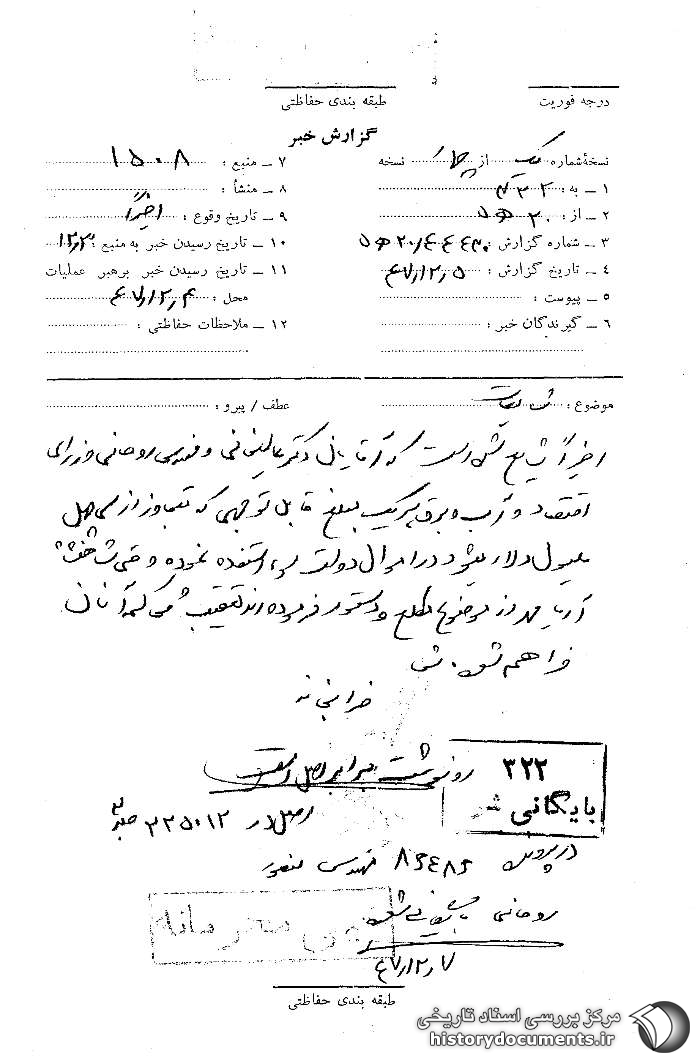 درجه فوریت
طبقه بندی حفاظتی
گزارش خبر
نسخهٔ شماره یک از چهار نسخه
۱ ـ به : ۳۲۲
۲ ـ از : ۲۰ ه‍ ۵
۳ ـ شماره گزارش : ۲۰/۶۶۴۳۰ ه‍ ۵
۴ ـ تاریخ گزارش : ۴۷/۱۲/۵
۵ ـ پیوست :
۶ ـ گیرندگان خبر :
۷ ـ منبع : ۱۵۰۸
۸ ـ منشأ :
۹ ـ تاریخ وقوع : اخیراً
۱۰ ـ تاریخ رسیدن خبر به منبع :
۱۱ ـ تاریخ رسیدن خبر برهبر عملیات
محل : ۴۷/۱۲/۴
۱۲ ـ ملاحظات حفاظتی :
موضوع : شایعات
عطف / پیرو :
اخیراً شایع شده است که آقایان دکتر عالیخانی و مهندس روحانی وزرای
اقتصاد و آب و برق هریک مبلغ قابل توجهی که تجاوز از سی چهل
میلیون دلار میشود در اموال دولت سوء استفاده نموده و حتی شاهنشاه
آریامهر از موضوع مطلع و دستور فرموده‌اند تعقیب و محاکمه آنان
فراهم شود. ش
ضرابخانه
۳۲۲
بایگانی شد
رونوشت برابر اصل است
اصل در ۳۲۵۰۱۲
در پرونده ۸۶۴۸۶ مهندس منصور
روحانی بایگانی شود
۴۷/۱۲/۷
خیلی محرمانه
طبقه بندی حفاظتی
مرکز بررسی اسناد تاریخی
historydocuments.ir